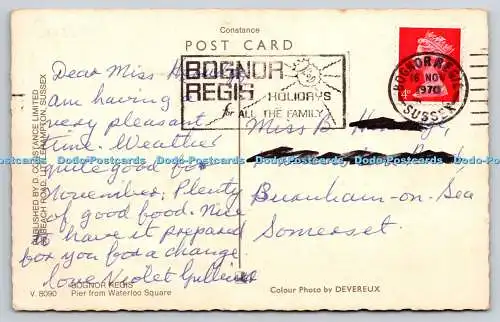 Constance
POST CARD
BOGNOR
REGIS
HOLIDAYS
for ALL THE FAMILY
BOGNOR REGIS
16 NOV
1970
SUSSEX
4P
Dear Miss
am having a
very pleasant
time. Weather
quite good for
November. Plenty
of good food. Nice
to have it prepared
for you for a change
love Violet
Miss B
Burnham-on-Sea
Somerset.
PUBLISHED BY D. CONSTANCE LIMITED
BEACH ROAD, LITTLEHAMPTON, SUSSEX
BOGNOR REGIS
V. 8090 Pier from Waterloo Square
Colour Photo by DEVEREUX
Dodo-Postcards.com Dodo-Postcards.com Dodo-Postcards.com Dodo-Postcards.com Dodo-Postcards.com